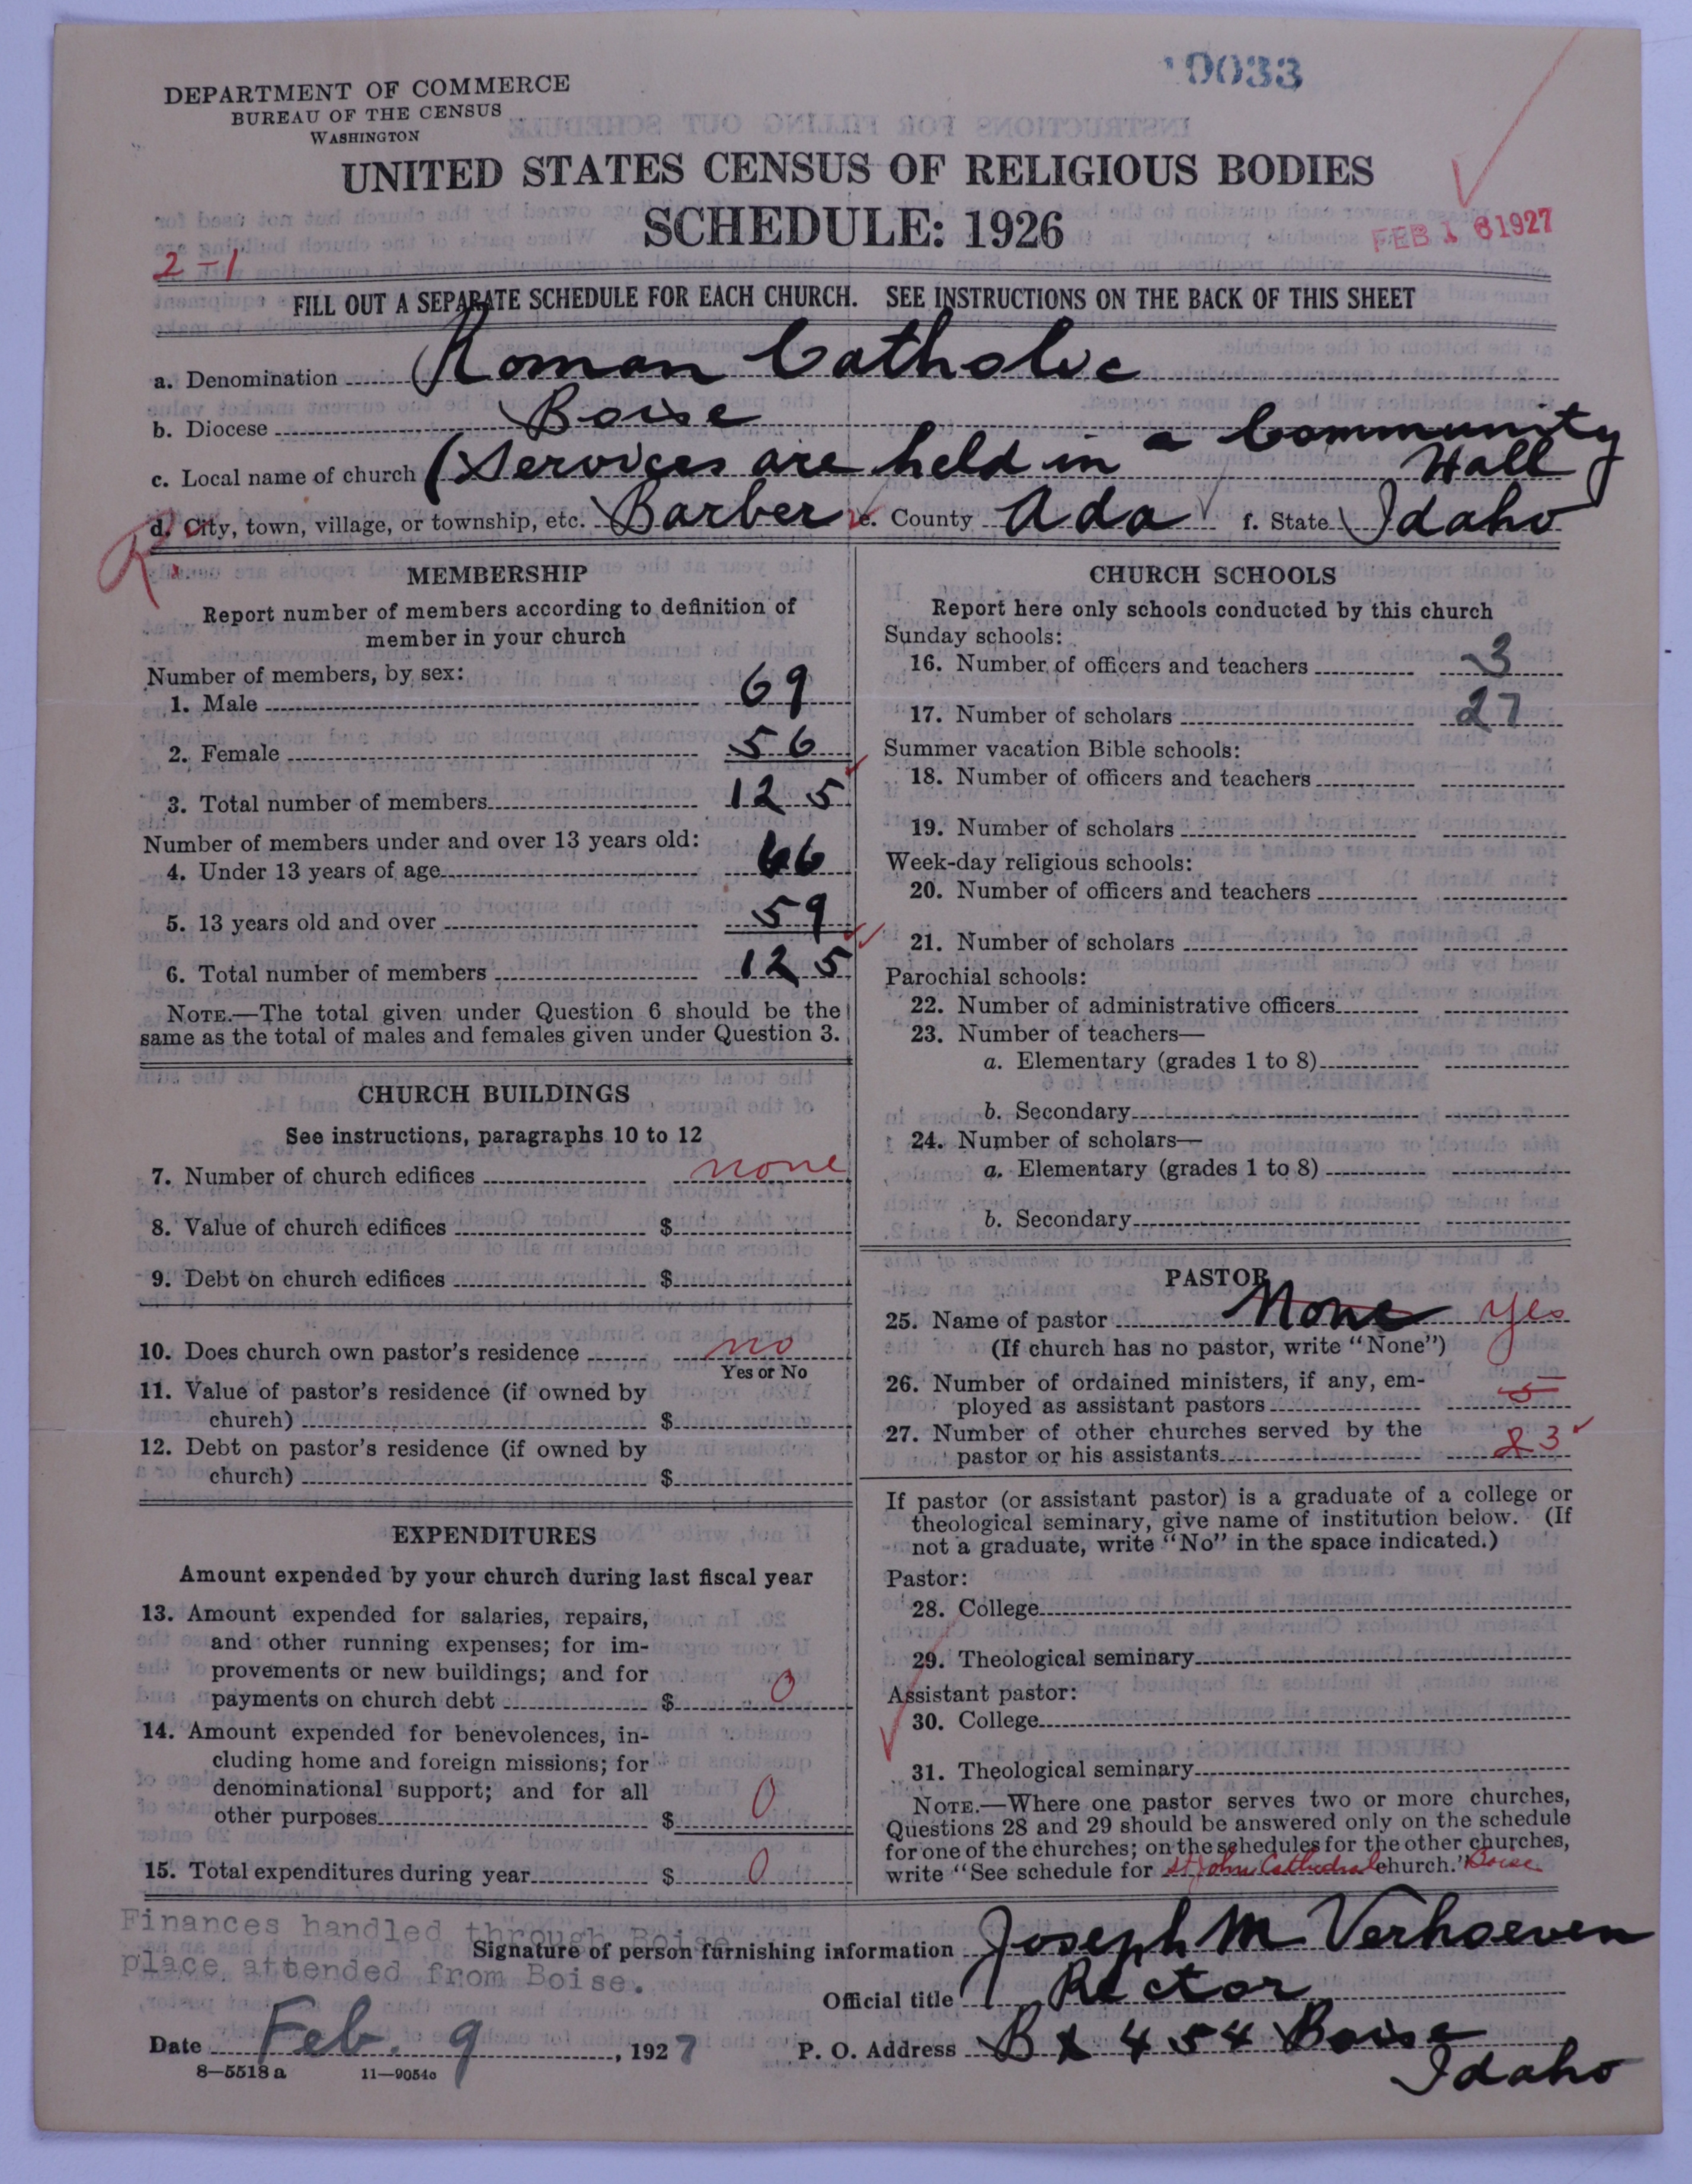 19033
DEPARTMENT OF COMMERCE
BUREAU OF THE CENSUS
WASHINGTON
UNITED STATES CENSUS OF RELIGIOUS BODIES
SCHEDULE: 1926
FEB 16 1927
2-1
FILL OUT A SEPARATE SCHEDULE FOR EACH CHURCH. SEE INSTRUCTIONS ON THE BACK OF THIS SHEET
a. Denomination Roman Catholic
b. Diocese Boise
c. Local name of church (Services are held in a Community Hall)
d. City, town, village, or township, etc. Barber e. County Ada f. State Idaho
R.
MEMBERSHIP
Report number of members according to definition of
member in your church
Number of members, by sex:
1. Male 69
2. Female 56
3. Total number of members 125
Number of members under and over 13 years old:
4. Under 13 years of age 66
5. 13 years old and over 59
6. Total number of members 125
NOTE.—The total given under Question 6 should be the
same as the total of males and females given under Question 3.
CHURCH BUILDINGS
See instructions, paragraphs 10 to 12
7. Number of church edifices none
8. Value of church edifices $
9. Debt on church edifices $
10. Does church own pastor's residence no
Yes or No
11. Value of pastor's residence (if owned by
church) $
12. Debt on pastor's residence (if owned by
church) $
EXPENDITURES
Amount expended by your church during last fiscal year
13. Amount expended for salaries, repairs,
and other running expenses; for im-
provements or new buildings; and for
payments on church debt $ 0
14. Amount expended for benevolences, in-
cluding home and foreign missions; for
denominational support; and for all
other purposes $ 0
15. Total expenditures during year $ 0
CHURCH SCHOOLS
Report here only schools conducted by this church
Sunday schools:
16. Number of officers and teachers 3
17. Number of scholars 27
Summer vacation Bible schools:
18. Number of officers and teachers
19. Number of scholars
Week-day religious schools:
20. Number of officers and teachers
21. Number of scholars
Parochial schools:
22. Number of administrative officers
23. Number of teachers—
a. Elementary (grades 1 to 8)
b. Secondary
24. Number of scholars—
a. Elementary (grades 1 to 8)
b. Secondary
PASTOR
25. Name of pastor None yes
(If church has no pastor, write "None")
26. Number of ordained ministers, if any, em-
ployed as assistant pastors
27. Number of other churches served by the
pastor or his assistants 3
If pastor (or assistant pastor) is a graduate of a college or
theological seminary, give name of institution below. (If
not a graduate, write "No" in the space indicated.)
Pastor:
28. College
29. Theological seminary
Assistant pastor:
30. College
31. Theological seminary
NOTE.—Where one pastor serves two or more churches,
Questions 28 and 29 should be answered only on the schedule
for one of the churches; on the schedules for the other churches,
write "See schedule for St John Cathedral church." Boise.
Finances handled through Boise
place attended from Boise.
Signature of person furnishing information Joseph M Verhoeven
Official title Rector
Date Feb. 9, 1927 P. O. Address Bx 454 Boise
Idaho
8—5518a 11—9054c